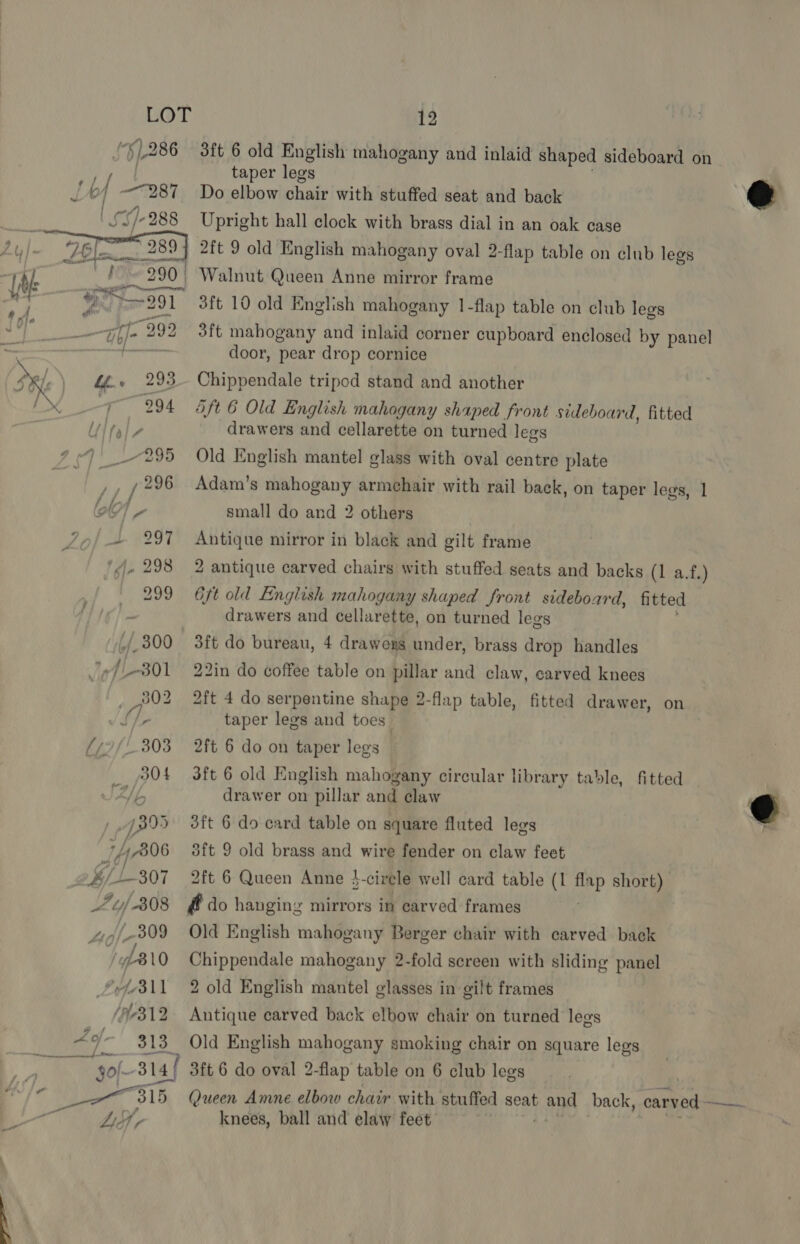 LOT 12
286 3ft 6 old English mahogany and inlaid shaped sideboard on
taper legs
287 Do elbow chair with stuffed seat and back
288 Upright hall clock with brass dial in an oak case
289 } 2ft 9 old English mahogany oval 2-flap table on club legs
290 Walnut Queen Anne mirror frame
291 3ft 10 old English mahogany 1-flap table on club legs
292 3ft mahogany and inlaid corner cupboard enclosed by panel
door, pear drop cornice
293 Chippendale tripod stand and another
294 5ft 6 Old English mahogany shaped front sideboard, fitted
drawers and cellarette on turned legs
295 Old English mantel glass with oval centre plate
296 Adam's mahogany armchair with rail back, on taper legs, 1
small do and 2 others
297 Antique mirror in black and gilt frame
298 2 antique carved chairs with stuffed seats and backs (1 a.f.)
299 6ft old English mahogany shaped front sideboard, fitted
drawers and cellarette, on turned legs
300 3ft do bureau, 4 drawers under, brass drop handles
301 22in do coffee table on pillar and claw, carved knees
302 2ft 4 do serpentine shape 2-flap table, fitted drawer, on
taper legs and toes
303 2ft 6 do on taper legs
304 3ft 6 old English mahogany circular library table, fitted
drawer on pillar and claw
305 3ft 6 do card table on square fluted legs
306 3ft 9 old brass and wire fender on claw feet
307 2ft 6 Queen Anne ½-circle well card table (1 flap short)
308 do hanging mirrors in carved frames
309 Old English mahogany Berger chair with carved back
310 Chippendale mahogany 2-fold screen with sliding panel
311 2 old English mantel glasses in gilt frames
312 Antique carved back elbow chair on turned legs
313 Old English mahogany smoking chair on square legs
314 3ft 6 do oval 2-flap table on 6 club legs
315 Queen Amne elbow chair with stuffed seat and back, carved
knees, ball and claw feet